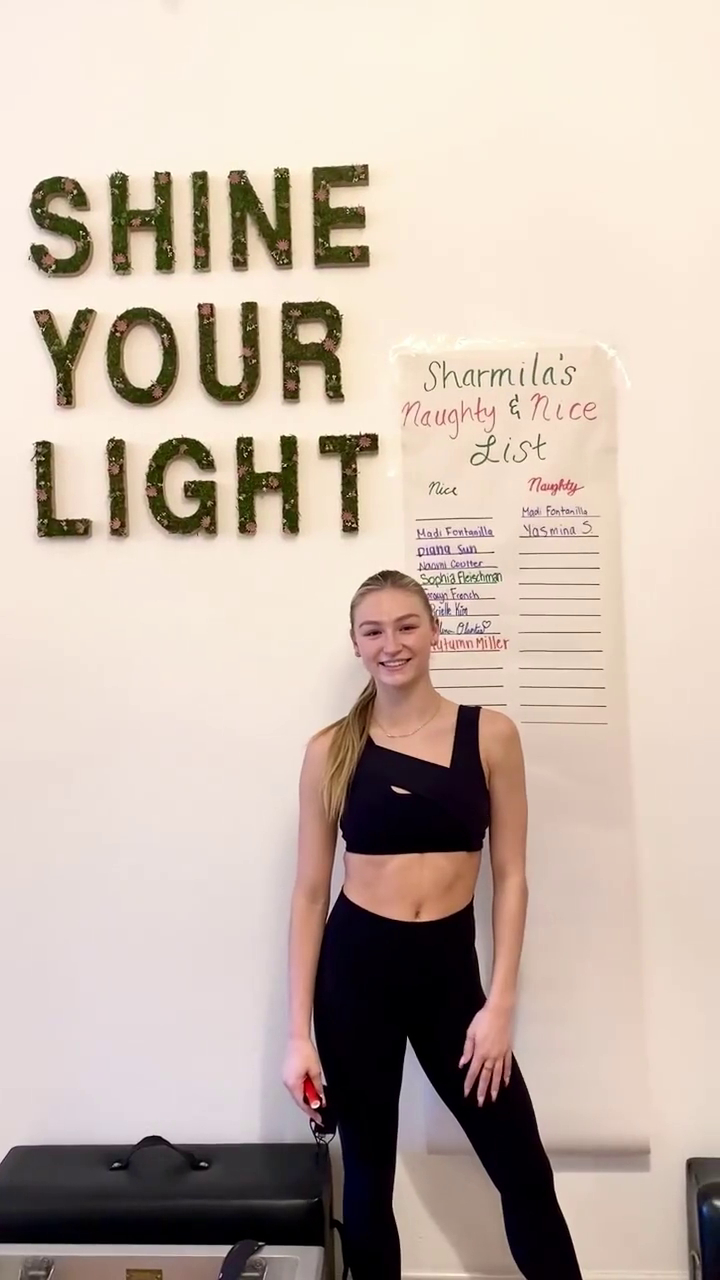 SHINE
YOUR
LIGHT
Sharmila's
Naughty & Nice
List
Nice
Madi Fontanilla
Diana Sun
Naomi Coulter
Sophia Fleischman
French
Kim
Autumn Miller
Naughty
Madi Fontanilla
Yasmina S.